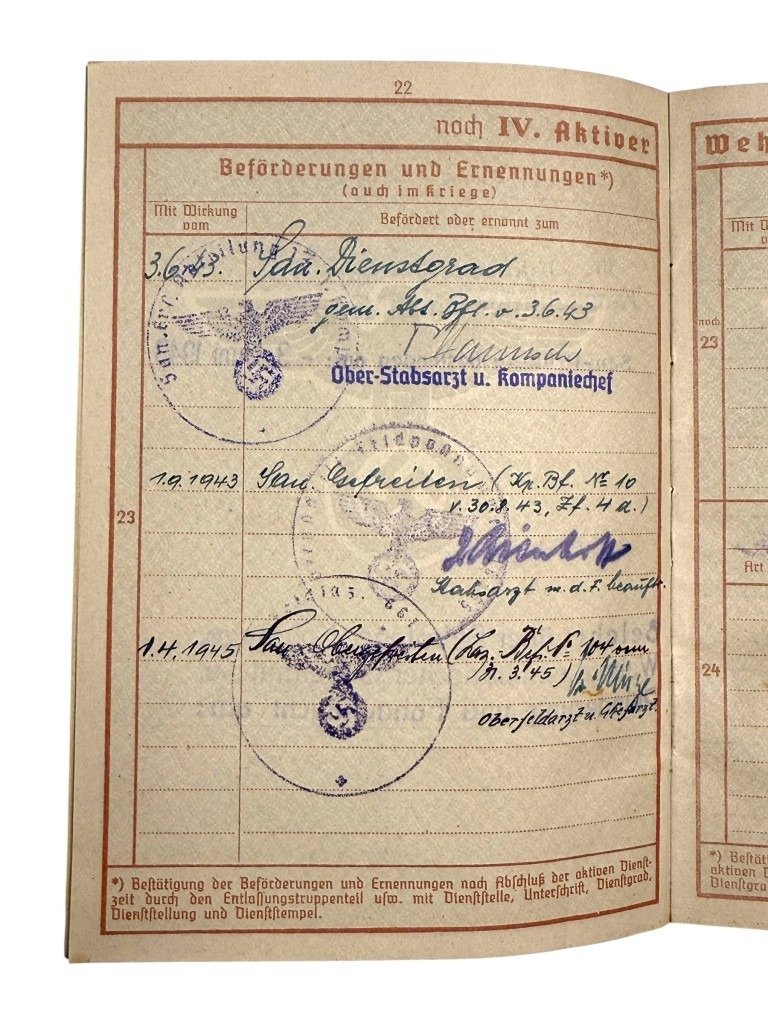 22
noch IV. Aktiver
Beförderungen und Ernennungen*)
(auch im Kriege)
Mit Wirkung vom
Befördert oder ernannt zum
3.6.43. San. Dienstgrad
gem. Abt. Bfl. v. 3.6.43
Ober-Stabsarzt u. Kompaniechef
23
1.9.1943 San. Gefreiten (Kp. Bf. No 10
v. 30.8.43, Zf. 4 a.)
Stabsarzt m. d. F. beauftr.
1.4.1945 San. Obergefreiten (Laz. Bef. No 104 vom
3.45)
Oberfeldarzt u. Chefarzt
*) Bestätigung der Beförderungen und Ernennungen nach Abschluß der aktiven Dienst-
zeit durch den Entlassungstruppenteil usw. mit Dienststelle, Unterschrift, Dienstgrad,
Dienststellung und Dienststempel.
Weh
Mit W
noch
23
Art
24
*) Bestäti
aktiven D
Dienstgra